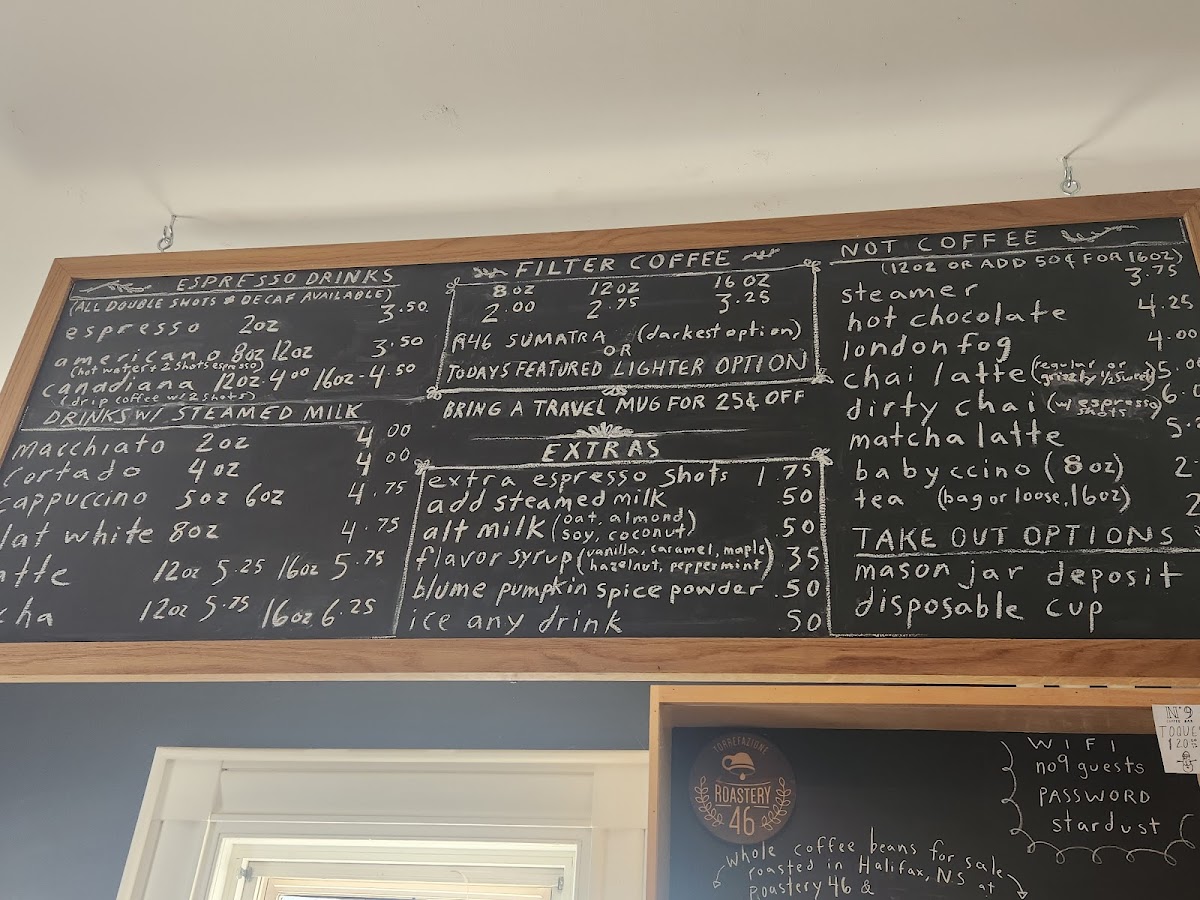 ESPRESSO DRINKS
(ALL DOUBLE SHOTS & DECAF AVAILABLE)
espresso 2oz 3.50
americano 8oz 12oz 3.50
(hot water + 2 shots espresso)
canadiana 12oz-4.00 16oz-4.50
(drip coffee w/ 2 shots)
DRINKS W/ STEAMED MILK
macchiato 2oz 4.00
cortado 4oz 4.00
cappuccino 5oz 6oz 4.75
lat white 8oz 4.75
atte 12oz 5.25 16oz 5.75
cha 12oz 5.75 16oz 6.25
FILTER COFFEE
8oz 12oz 16oz
2.00 2.75 3.25
1946 SUMATRA (darkest option)
OR
TODAYS FEATURED LIGHTER OPTION
BRING A TRAVEL MUG FOR 25¢ OFF
EXTRAS
extra espresso shots 1.75
add steamed milk 50
alt milk (oat, almond, soy, coconut) .50
flavor syrup (vanilla, caramel, maple hazelnut, peppermint) .35
blume pumpkin spice powder .50
ice any drink 50
NOT COFFEE
(12oz OR ADD 50¢ FOR 16oz)
steamer 3.75
hot chocolate 4.25
london fog 4.00
chai latte (regular or grizzly ½ sweet) 5.0
dirty chai (w/ espresso shots) 6.
matcha latte 5.
babyccino (8oz) 2.
tea (bag or loose, 16oz) 2
TAKE OUT OPTIONS
mason jar deposit
disposable cup
TORREFAZIONE
ROASTERY
46
whole coffee beans for sale
roasted in Halifax, NS at
Roastery 46 &
WIFI
no9guests
PASSWORD
stardust
Nº9
TOQUE